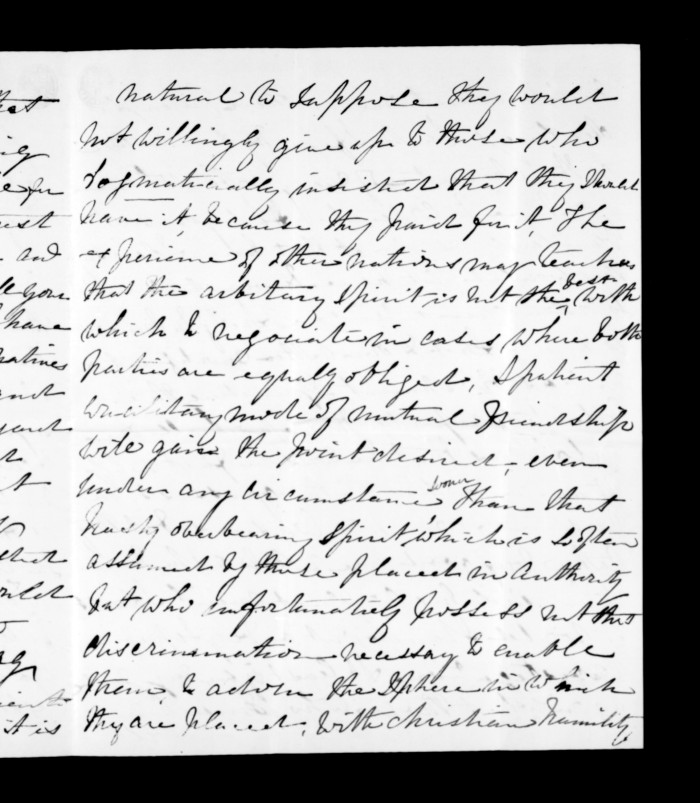 natural to suppose they would
not willingly give up to those who
dogmatically insisted that they should
have it, because they paid for it, The
experience of other nations may teach us
that the arbitary spirit is not the best with
which to negociate in cases where both
parties are equally obliged, A patient
conciliatary mode of mutual friendship
will gain the point desired, even
under any circumstance sooner than that
hasty overbearing spirit, which is so often
assumed by those placed in Authority
but who unfortunately possess not that
discrimination necessary to enable
them to adorn the Sphere in which
they are placed, with christian humility
and
have
natives
it is